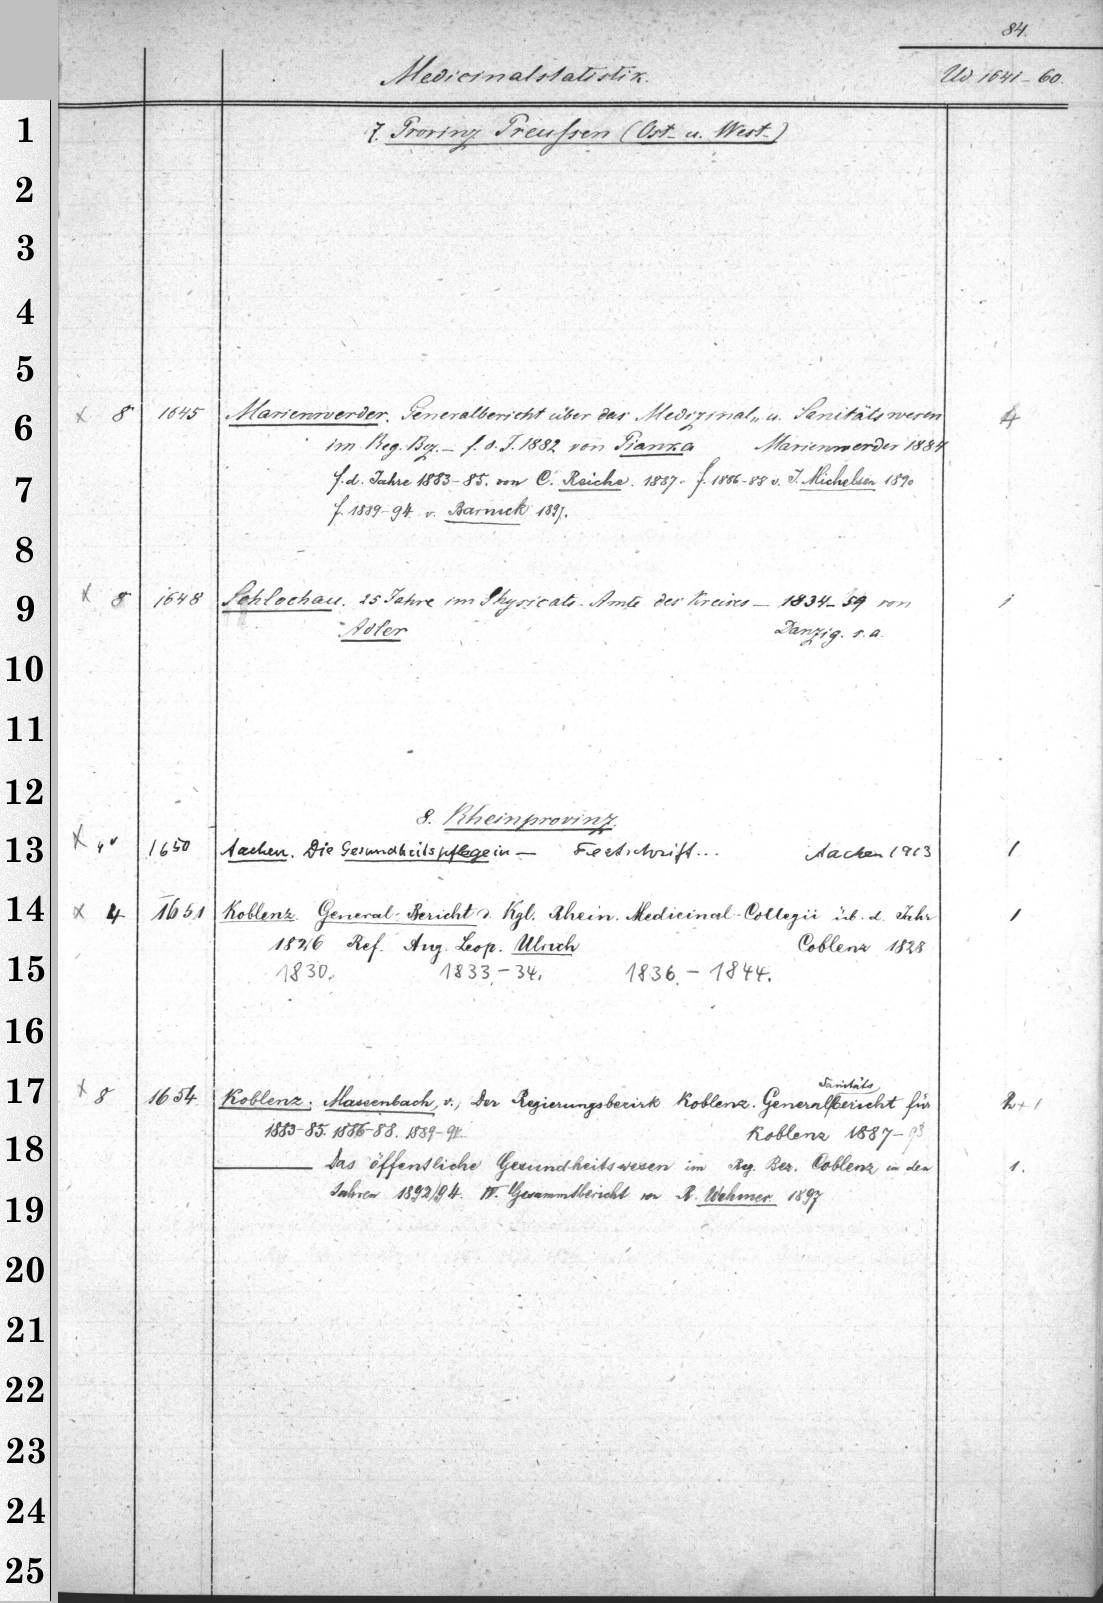 84.
Medicinalstatistik. Ud. 1641-60.
1 7. Provinz Preußen (Ost- u. West-)
2
3
4
5
6 x 8 1645 Marienwerder. Generalbericht über das Medizinal- u. Sanitätswesen 4
im Reg. Bez. – f. d. J. 1882 von Pianka Marienwerder 1884
7 f. d. Jahre 1883-85. von C. Reiche. 1887. f. 1886-88 v. J. Michelsen 1890
f. 1889-94 v. Barnick 1897.
8
9 x 8 1648 Schlochau. 25 Jahre im Physicats-Amte des Kreises – 1834-59 von 1
Adler Danzig. s. a.
10
11
12
8. Rheinprovinz.
13 x 4° 1650 Aachen. Die Gesundheitspflege in – Festschrift... Aachen 1913 1
14 x 4 1651 Koblenz. General-Bericht d. Kgl. Rhein. Medicinal-Collegii üb. d. Jahr 1
1826 Ref. Aug. Leop. Ulrich Coblenz 1828
15 1830. 1833.-34. 1836.-1844.
16
Sanitäts
17 x 8 1654 Koblenz. Massenbach, v., Der Regierungsbezirk Koblenz. Generalbericht für 2+1
1883-85. 1886-88. 1889-91. Koblenz 1887-93
18 ——— Das öffentliche Gesundheitswesen im Reg. Bez. Coblenz in den 1.
19 Jahren 1892/94. IV. Gesammtbericht von R. Wehmer. 1897
20
21
22
23
24
25